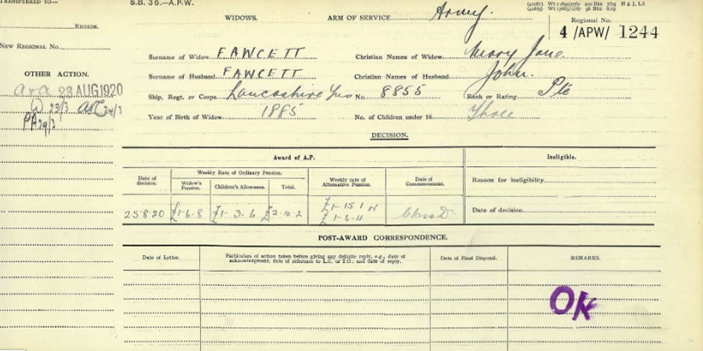 TRANSFERRED TO—
REGION.
NEW REGIONAL No.
OTHER ACTION.
23 AUG 1920
S.B. 36.—A.P.W.
WIDOWS. ARM OF SERVICE Army.
Regional No.
4 /APW/ 1244
Surname of Widow FAWCETT Christian Names of Widow Mary Jane.
Surname of Husband FAWCETT Christian Names of Husband John.
Ship, Regt. or Corps Lancashire Fus No. 8855 Rank or Rating Pte
Year of Birth of Widow 1885 No. of Children under 16 Three
DECISION.
Award of A.P. Ineligible.
Date of decision. Weekly Rate of Ordinary Pension. Weekly rate of Alternative Pension. Date of Commencement. Reason for ineligibility
Widow's Pension. Children's Allowance. Total.
25.8.20 £1-6-8 £1-3-6 £2-10-2 £1-15-1 or £1-6-11 Date of decision
POST-AWARD CORRESPONDENCE.
Date of Letter. Particulars of action taken before giving any definite reply, e.g., date of acknowledgment, date of reference to L.C. or T.O., and date of reply. Date of Final Disposal. REMARKS.
OK